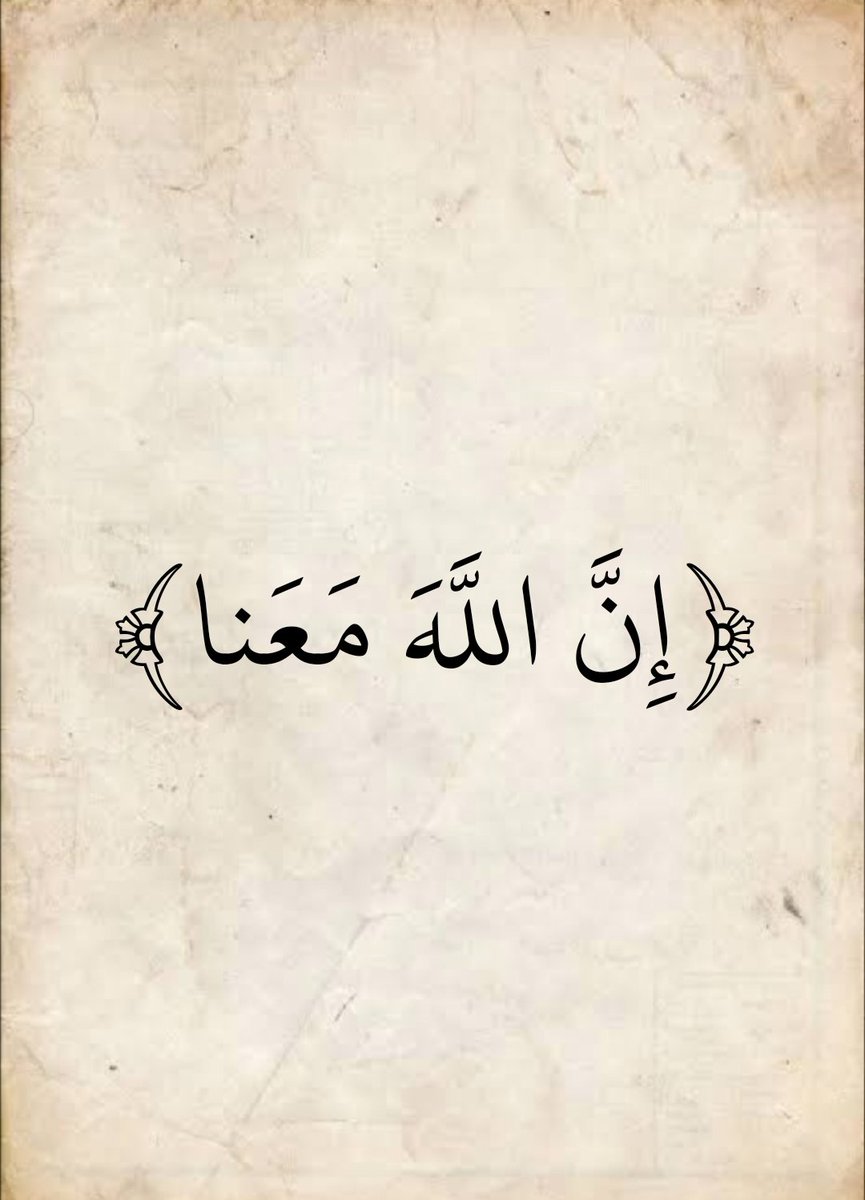 ﴿إِنَّ اللَّهَ مَعَنا﴾